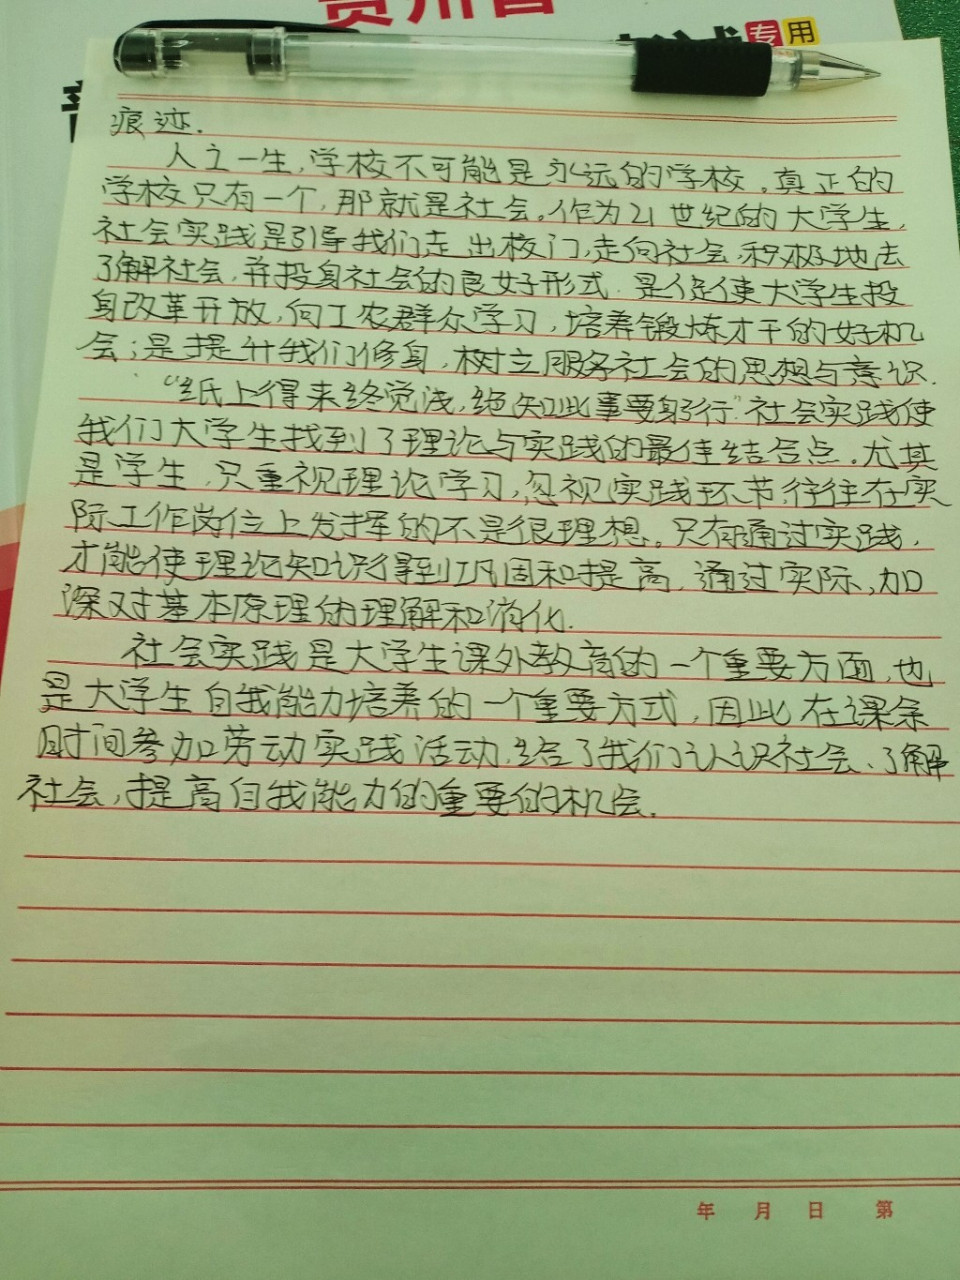 贵州省
专用
痕迹.
人之一生,学校不可能是永远的学校。真正的
学校只有一个,那就是社会。作为21世纪的大学生,
社会实践是引导我们走出校门,走向社会,积极地去
了解社会,并投身社会的良好形式.是促使大学生投
身改革开放,向工农群众学习,培养锻炼才干的好机
会;是提升我们修身,树立服务社会的思想与意识.
“纸上得来终觉浅,绝知此事要躬行”社会实践使
我们大学生找到了理论与实践的最佳结合点。尤其
是学生,只重视理论学习,忽视实践环节往往在实
际工作岗位上发挥的不是很理想。只有通过实践,
才能使理论知识得到巩固和提高.通过实际,加
深对基本原理的理解和消化.
社会实践是大学生课外教育的一个重要方面,也
是大学生自我能力培养的一个重要方式,因此在课余
时间参加劳动实践活动,给了我们认识社会、了解
社会,提高自我能力的重要的机会.
年 月 日 第